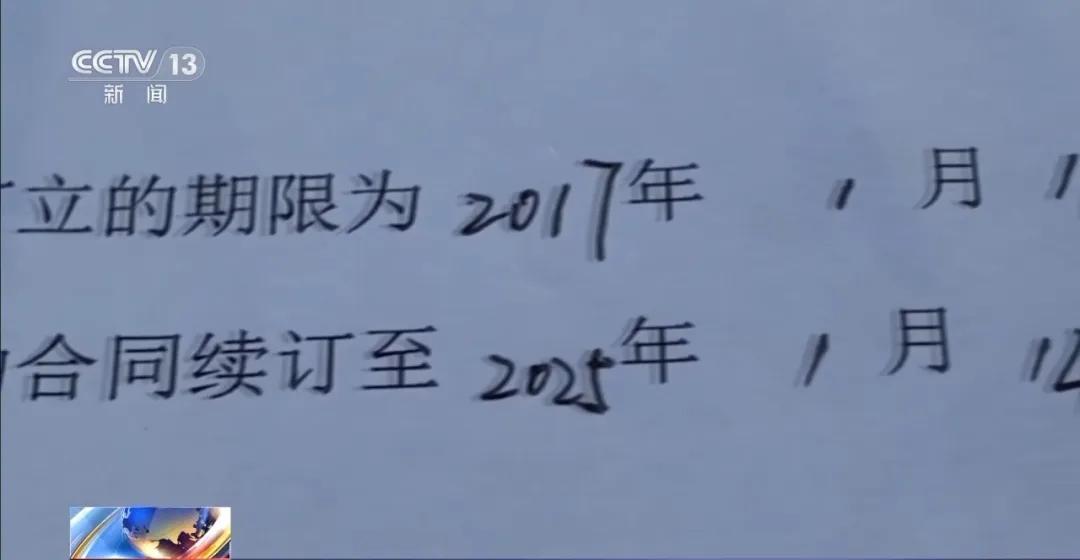 CCTV 13
新闻
立的期限为 2017年 1 月 1
合同续订至 2025年 1 月